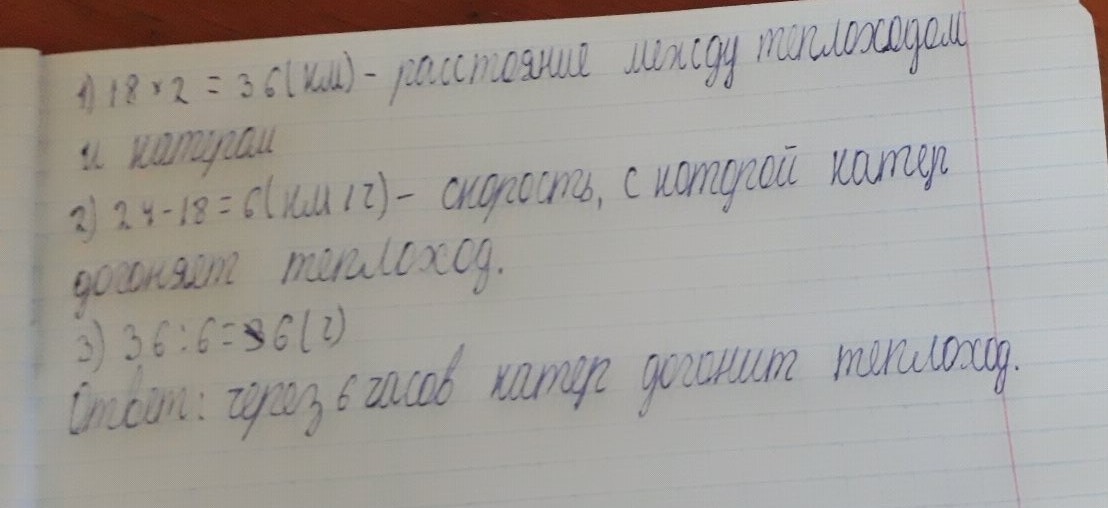 1) 18 × 2 = 36 (км) - расстояние между теплоходом
и катером
2) 24 - 18 = 6 (км/ч) - скорость, с которой катер
догоняет теплоход.
3) 36 : 6 = 6 (ч)
Ответ: через 6 часов катер догонит теплоход.